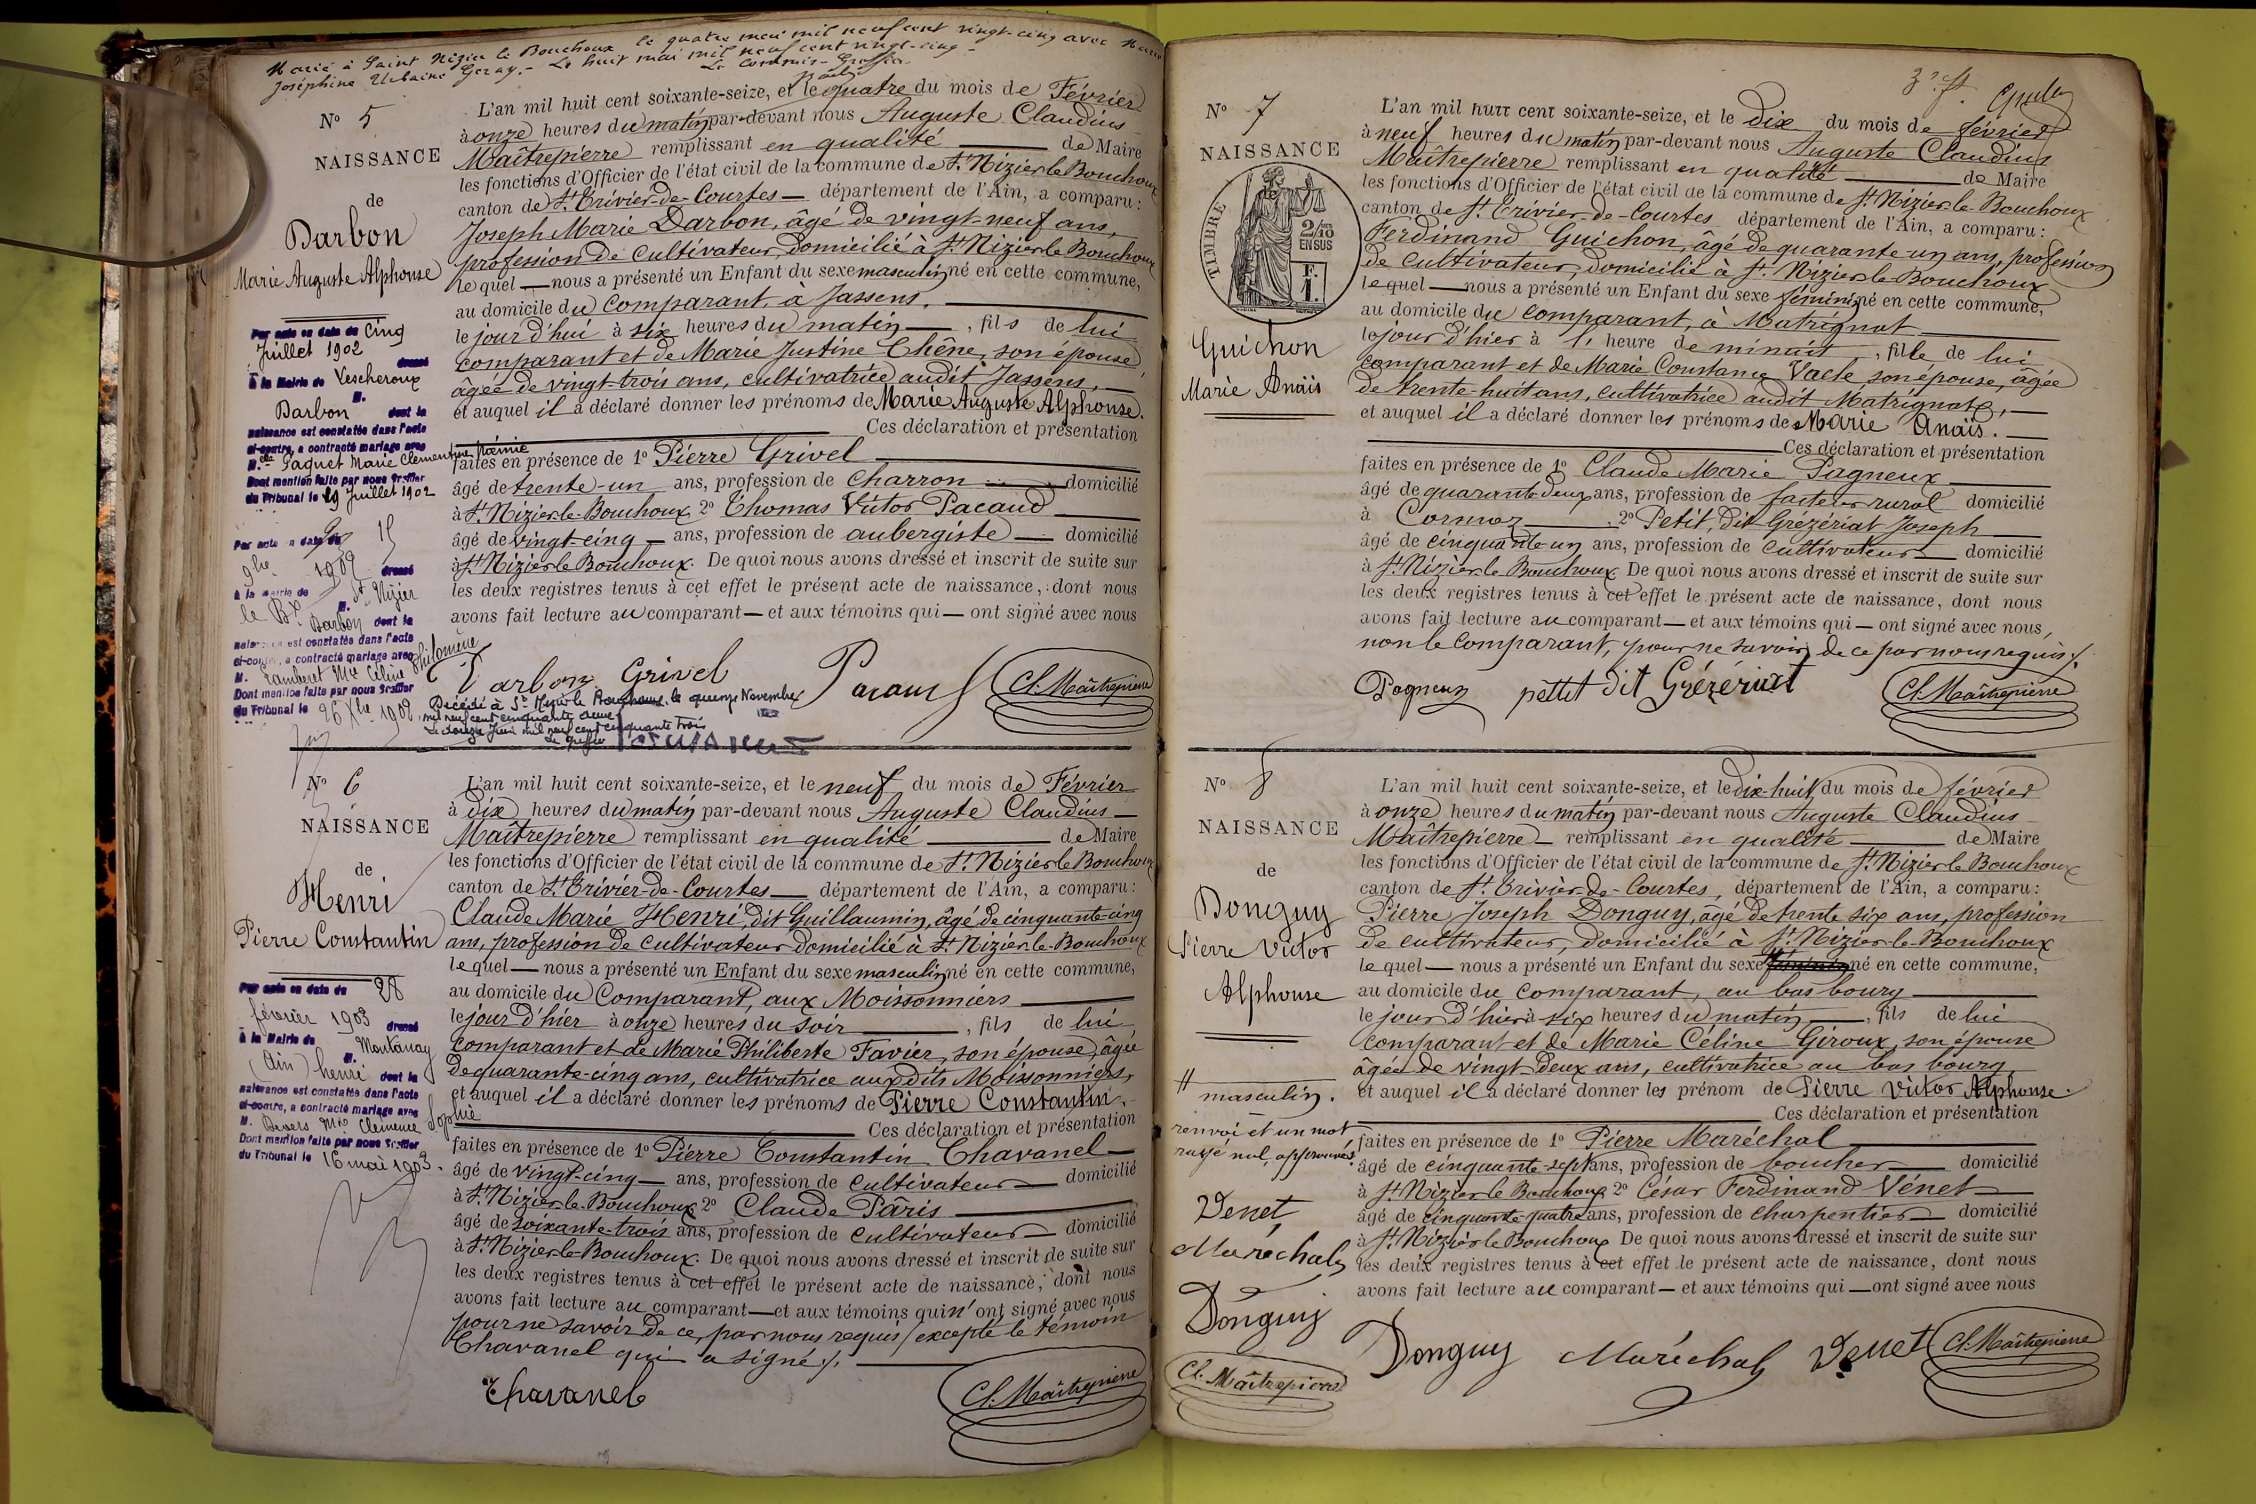 Marié à Saint Nizier le Bouchoux le quatre mai mil neuf cent vingt-cinq avec Marie
Joséphine Urbaine Geray. - Le huit mai mil neuf cent vingt-cinq -
Le Commis-Greffier
N° 5
NAISSANCE
de
Darbon
Marie Auguste Alphonse
Par acte en date du cinq
Juillet 1902
dressé
à la Mairie de Vescheroux
M.
Darbon dont la
naissance est constatée dans l'acte
ci-contre, a contracté mariage avec
M.elle Paquet Marie Clementine
Dont mention faite par nous Greffier
du Tribunal le 19 Juillet 1902
Par acte en date du 15
9bre 1909 dressé
à la Mairie de St Nizier
le Bx M.
Darbon dont la
naissance est constatée dans l'acte
ci-contre, a contracté mariage avec
M. Lambert Mie Céline Philomène
Dont mention faite par nous Greffier
du Tribunal le 26 Xbre 1909
L'an mil huit cent soixante-seize, et le quatre du mois de Février
à onze heures du matin par-devant nous Auguste Claudius
Maîtrepierre remplissant en qualité de Maire
les fonctions d'Officier de l'état civil de la commune de St Nizier le Bouchoux
canton de St Trivier-de-Courtes département de l'Ain, a comparu:
Joseph Marie Darbon, âgé de vingt-neuf ans,
profession de Cultivateur, domicilié à St Nizier le Bouchoux
lequel nous a présenté un Enfant du sexe masculin né en cette commune,
au domicile du Comparant, à Jassens.
le jour d'hui à six heures du matin, fils de lui
comparant et de Marie Justine Chêne, son épouse,
âgée de vingt-trois ans, cultivatrice audit Jassens,
et auquel il a déclaré donner les prénoms de Marie Auguste Alphonse.
Ces déclaration et présentation
faites en présence de 1° Pierre Grivel
âgé de trente-un ans, profession de Charron domicilié
à St Nizier-le-Bouchoux 2° Thomas Victor Pacaud
âgé de vingt-cinq ans, profession de aubergiste domicilié
à St Nizier le Bouchoux. De quoi nous avons dressé et inscrit de suite sur
les deux registres tenus à cet effet le présent acte de naissance, dont nous
avons fait lecture au comparant et aux témoins qui ont signé avec nous
Darbon Grivel Pacaud Cl. Maîtrepierre
Décédé à St Nizier le Bouchoux, le quinze Novembre
mil neuf cent cinquante deux
Le douze Juin mil neuf cent cinquante trois
Le Greffier
N° 6
NAISSANCE
de
Henri
Pierre Constantin
Par acte en date du 28
février 1903 dressé
à la Mairie de Montanay
(Ain) M.
henri dont la
naissance est constatée dans l'acte
ci-contre, a contracté mariage avec
M. Devers Mie Clémence Sophie
Dont mention faite par nous Greffier
du Tribunal le 16 mai 1903.
L'an mil huit cent soixante-seize, et le neuf du mois de Février
à dix heures du matin par-devant nous Auguste Claudius
Maîtrepierre remplissant en qualité de Maire
les fonctions d'Officier de l'état civil de la commune de St Nizier le Bouchoux
canton de St Trivier-de-Courtes département de l'Ain, a comparu:
Claude Marie Henri, dit Guillaumin, âgé de cinquante-cinq
ans, profession de Cultivateur domicilié à St Nizier-le-Bouchoux
lequel nous a présenté un Enfant du sexe masculin né en cette commune,
au domicile du Comparant, aux Moissonniers
le jour d'hier à onze heures du soir, fils de lui
comparant et de Marie Philiberte Favier, son épouse, âgée
de quarante-cinq ans, cultivatrice aux dits Moissonniers,
et auquel il a déclaré donner les prénoms de Pierre Constantin.
Ces déclaration et présentation
faites en présence de 1° Pierre Constantin Chavanel
âgé de vingt-cinq ans, profession de Cultivateur domicilié
à St Nizier-le-Bouchoux 2° Claude Pâris
âgé de soixante-trois ans, profession de cultivateur domicilié
à St Nizier-le-Bouchoux. De quoi nous avons dressé et inscrit de suite sur
les deux registres tenus à cet effet le présent acte de naissance, dont nous
avons fait lecture au comparant et aux témoins qui n'ont signé avec nous
pour ne savoir de ce, par nous requis, excepté le témoin
Chavanel qui a signé.
Chavanel Cl. Maîtrepierre
3e f.
N° 7
NAISSANCE
TIMBRE
2/10
EN SUS
F.
1.
Guichon
Marie Anaïs
L'an mil huit cent soixante-seize, et le Dix du mois de février
à neuf heures du matin par-devant nous Auguste Claudius
Maîtrepierre remplissant en qualité de Maire
les fonctions d'Officier de l'état civil de la commune de St Nizier-le-Bouchoux
canton de St Trivier-de-Courtes département de l'Ain, a comparu:
Ferdinand Guichon, âgé de quarante un ans, profession
de Cultivateur, domicilié à St Nizier le Bouchoux
lequel nous a présenté un Enfant du sexe féminin né en cette commune,
au domicile du comparant, à Matrignat
le jour d'hier à l' heure de minuit, fille de lui
comparant et de Marie Constance Vacle son épouse, âgée
de trente-huit ans, cultivatrice audit Matrignat,
et auquel il a déclaré donner les prénoms de Marie Anaïs.
Ces déclaration et présentation
faites en présence de 1° Claude Marie Pagneux
âgé de quarante deux ans, profession de facteur rural domicilié
à Cormoz 2° Petit, dit Grézériat Joseph
âgé de cinquante-un ans, profession de Cultivateur domicilié
à St Nizier le Bouchoux De quoi nous avons dressé et inscrit de suite sur
les deux registres tenus à cet effet le présent acte de naissance, dont nous
avons fait lecture au comparant et aux témoins qui ont signé avec nous,
non le comparant, pour ne savoir, de ce par nous requis.
Pagneux petit dit Grézériat Cl. Maîtrepierre
N° 8
NAISSANCE
de
Donguy
Pierre Victor
Alphonse
masculin.
renvoi et un mot
rayé nul, approuvés.
Venet
Maréchal
Donguy
Cl. Maîtrepierre
L'an mil huit cent soixante-seize, et le dix-huit du mois de février
à onze heures du matin par-devant nous Auguste Claudius
Maîtrepierre remplissant en qualité de Maire
les fonctions d'Officier de l'état civil de la commune de St Nizier le Bouchoux
canton de St Trivier-de-Courtes, département de l'Ain, a comparu:
Pierre Joseph Donguy, âgé de trente six ans, profession
de cultivateur, domicilié à St Nizier-le-Bouchoux
lequel nous a présenté un Enfant du sexe né en cette commune,
au domicile du comparant, au bas bourg
le jour d'hier à six heures du matin, fils de lui
comparant et de Marie Céline Giroux, son épouse
âgée de vingt-deux ans, cultivatrice au bas bourg,
et auquel il a déclaré donner les prénom de Pierre Victor Alphonse.
Ces déclaration et présentation
faites en présence de 1° Pierre Maréchal
âgé de cinquante-sept ans, profession de boucher domicilié
à St Nizier le Bouchoux 2° César Ferdinand Vénet
âgé de cinquante-quatre ans, profession de charpentier domicilié
à St Nizier le Bouchoux De quoi nous avons dressé et inscrit de suite sur
les deux registres tenus à cet effet le présent acte de naissance, dont nous
avons fait lecture au comparant et aux témoins qui ont signé avec nous
Donguy Maréchal Venet Cl. Maîtrepierre